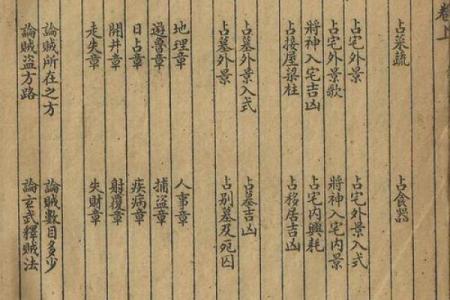 卷上
占菜蔬　占食器
占宅外景　占宅外景入式
占宅外景歌　將神入宅內景
將神入宅吉凶　占宅內興耗
占接屋梁柱　占移居吉凶
占墓外景入式　占墓吉凶
占墓外景　占別墓及死囚
地理章　人事章
遊魯章　捕盜章
日占章　疾病章
開井章　射覆章
走失章　失財章
論賊所在之方　論賊數目多少
論賊盜方路　論玄武釋賊法